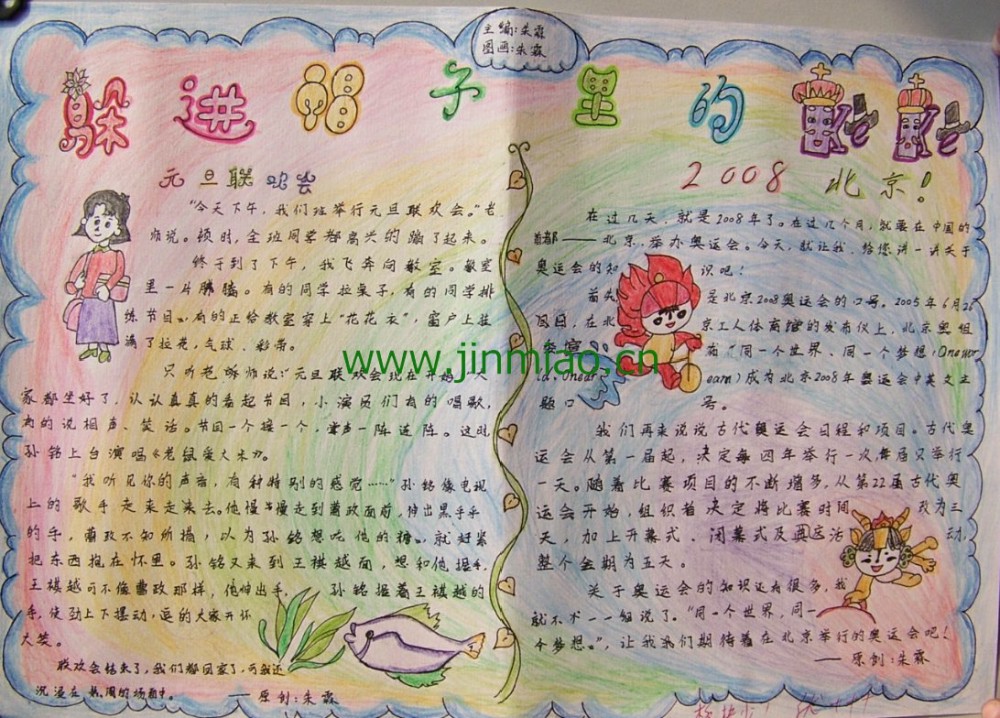 主编:朱霖
图画:朱霖
躲进帽子里的
元旦联欢会
“今天下午，我们班举行元旦联欢会。”老
师说。顿时，全班同学都高兴的蹦了起来。
终于到了下午，我飞奔向教室。教室
里一片腾腾。有的同学拉桌子，有的同学排
练节目，有的正给教室穿上“花花衣”，窗户上挂
满了拉花，气球，彩带。
只听老师说:“元旦联欢会现在开始”大
家都坐好了，认认真真的看起节目，小演员们有的唱歌，
有的说相声、笑话。节目一个接一个，掌声一阵连阵。这时
孙铭上台演唱《老鼠爱大米》。
“我听见你的声音，有种特别的感觉……”孙铭像电视
上的歌手走来走去。他慢慢走到曹政面前，伸出黑乎乎
的手，曹政不知所措，以为孙铭想吃他的糖，就赶紧
把东西抱在怀里。孙铭又来到王棋越面，想和他握手，
王棋越可不像曹政那样，他伸出手，孙铭握着王棋越的
手，使劲上下摆动，逗的大家开怀
大笑。
联欢会结束了，我们都回家了，可我还
沉浸在热闹的场面中。
——原创:朱霖
2008 北京!
在过几天，就是2008年了。在过几个月，就要在中国的
首都——北京，举办奥运会。今天，就让我，给您讲一讲关于
奥运会的知识吧!
首先 是北京2008奥运会的口号。2005年6月26
日，在北京工人体育馆的发布仪上，北京奥组
委宣 “同一个世界、同一个梦想(One wor
ld, One dream)成为北京2008年奥运会中英文主
题口号。
我们再来说说古代奥运会日程和项目。古代奥
运会从第一届起，决定每四年举行一次，每届又举行
一天。随着比赛项目的不断增多，从第22届古代奥
运会开始，组织者决定将比赛时间改为三
天，加上开幕式、闭幕式及 活动，
整个会期为五天。
关于奥运会的知识还有很多，我
就不术一一细说了。“同一个世界，同一
个梦想。”，让我们期待着在北京举行的奥运会吧!
——原创:朱霖
www.jinmiao.cn